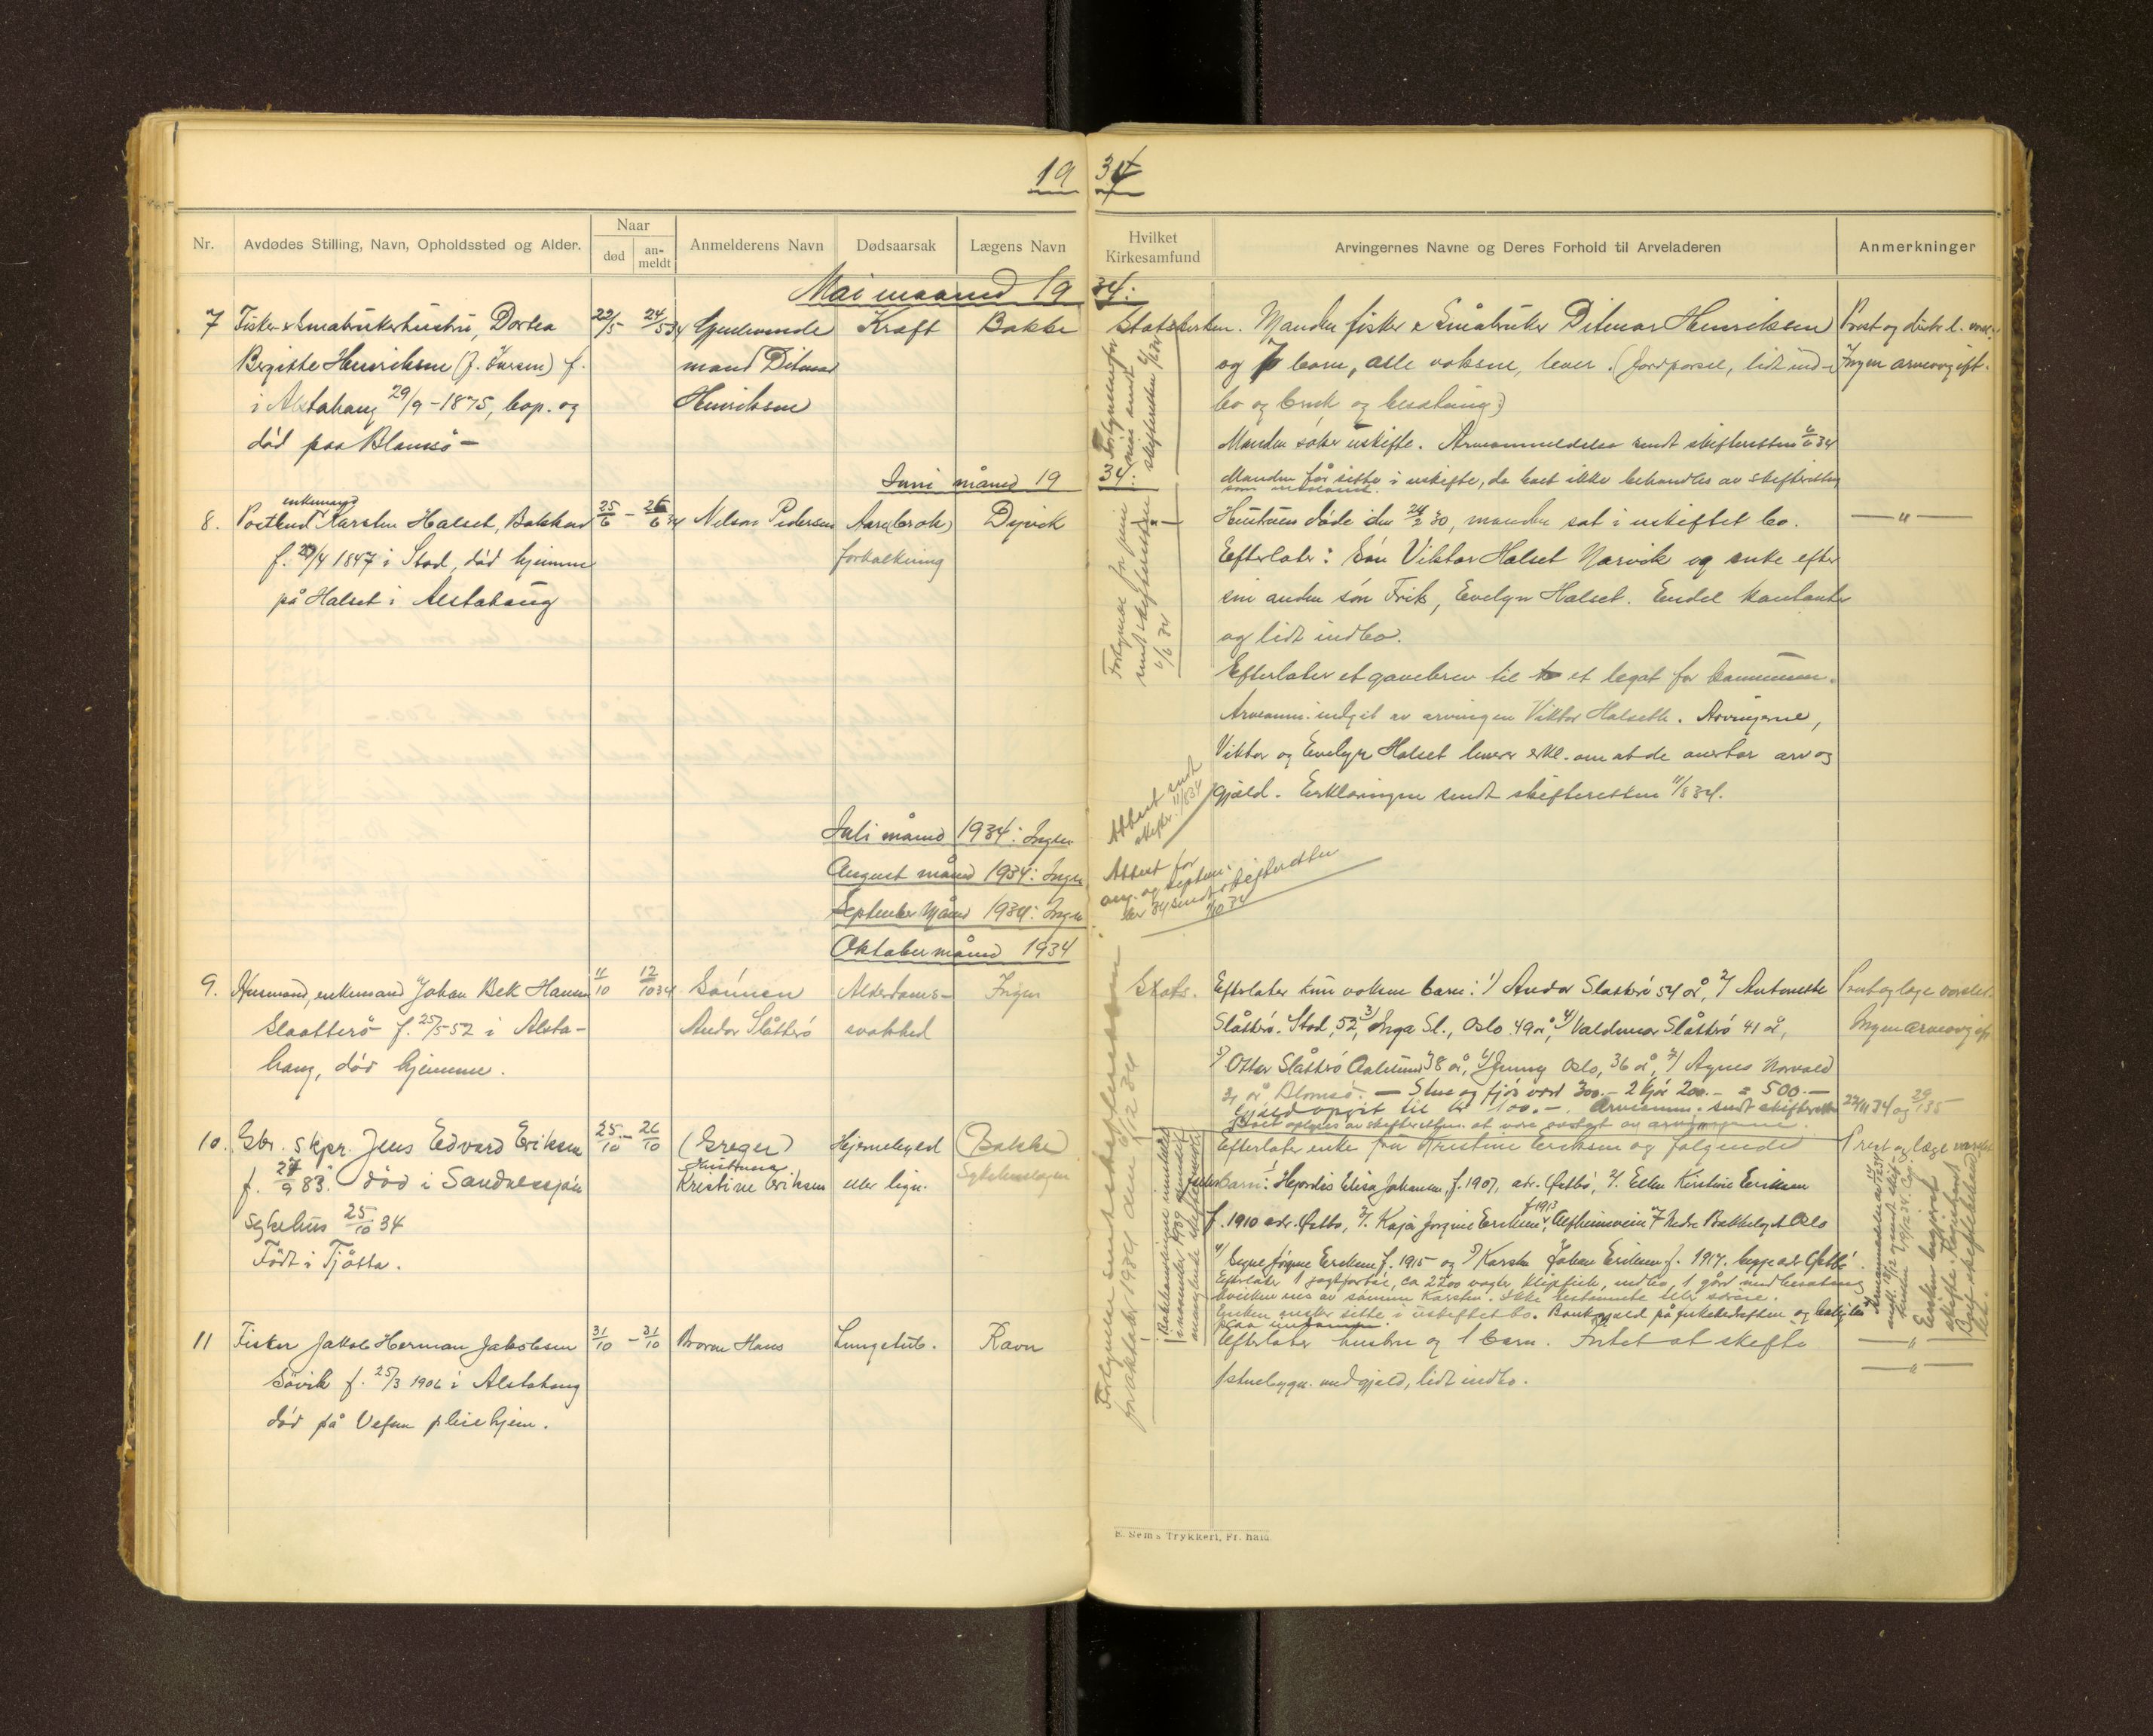 19 34
Nr.
Avdødes Stilling, Navn, Opholdssted og Alder.
Naar
død
an-
meldt
Anmelderens Navn
Dødsaarsak
Lægens Navn
Hvilket
Kirkesamfund
Arvingernes Navne og Deres Forhold til Arveladeren
Anmerkninger
Mai maaned 19 34:
7 Fisker- & Småbrukerhustru, Dortea
Birgitte Henriksen (f. Iversen) f.
i Alstahaug 29/9-1875, bop. og
død paa Blomsö-
22/5 24/5 34
mand Ditmar
Henriksen
Kræft
Bakke
Statskirken.
Manden fisker & Småbruker Ditmar Henriksen
og 7 barn, alle voksne, lever. (Jordparsel, lidt ind-
bo og bruk og besetning)
Manden søker uskifte. Arveanmeldelse sendt skifteretten 6/6 34
Manden får sitte i uskifte, da boet ikke behandles av skifteretten
Ingen arveavgift.
Juni måned 19 34:
8. Postbud enkemand Karsten Halset, Bakken
f. 20/4 1847 i Stod, død hjemme
på Halset i Alstahaug
25/6 - 26/6 34
Nelson Pedersen
Aare(brok)
forkalkning
Dyvik
- " -
Hustruen døde den 24/2 30, manden sat i uskiftet bo.
Efterlater: Sön Viktor Halset Narvik og enke efter
sin anden sön Frits, Evelyn Halset. Endel kontanter
og lidt indbo.
Efterlater et gavebrev til et legat for kommunen.
Arveanm. indgit av arvingen Viktor Halseth. Arvingerne,
Viktor og Evelyn Halset leverer erkl. om at de overtar arv og
gjæld. Erklæringen sendt skifteretten 11/8 34.
- " -
Fortegnelse for juni
sendt skifteretten
Attest sendt
skifter. 11/8 34
Juli måned 1934: Ingen
August måned 1934: Ingen
September Måned 1934: Ingen
Attest for
aug. og septem-
ber 34 sendt skifteretten
Oktober måned 1934
9. Husmand, enkemand Johan Bek Hansen
Slaatterö f. 25/5-52 i Alsta-
haug, död hjemme.
11/10 12/10 34
Sönnen
Andor Slåtterö
Alderdoms-
svakhed
Ingen
Stats.
Efterlater kun voksne barn: 1) Andor Slåtterö 54 år, 2) Antonette
Slåtterö. Stod, 52, 3) Inga Sl., Oslo 49 år, 4) Valdemar Slåtterö 41 år,
5) Otter Slåtterö Aalesund 38 år, 6) Jenny Oslo, 36 år, 7) Agnes Norvald
31 år Blomsö. - Stue og fjös verd 300.- 2 kjör 200.- = 500.-
Gjæld opgit til kr 100.-. Arveanm. sendt skifteretten
Boet oplyses av skifteretten at være overtat av arvingerne.
Prest og læge varslet.
Ingen arveavgift
22/11 34 og 29/1 35
10. Gbr. skpr. Jens Edvard Eriksen
f. 27/9 83. död i Sandnessjöen
sykehus 25/10 34
Födt i Tjötta.
25/10 - 26/10
(Greger)
Hustruen
Kristine Eriksen
Hjernebyld
eller lign.
(Bakke)
Sykehuslægen
Efterlater enke fru Kristine Eriksen og følgende
barn: 1) Hjørdis Elisa Johansen, f. 1907, adr. Östbö, 2). Ellen Kirstine Eriksen
f. 1910 adr. Östbö, 3). Kaja Jorgine Eriksen f 1913, Alfheimveien 7 Nedre Bekkelaget Oslo
4) Signe Jörgine Eriksen f. 1915 og 5) Karsten Johan Eriksen f. 1917. begge adr. Östbö
Efterlater 1 jagtfartöi, ca 2200 vagter klipfisk, indbo, 1 gård med besetning
Enken önsker sitte i uskiftet bo. Bankgjæld på
Prest og læge varslet
11 Fisker Jakob Herman Jakobsen
Sövik f. 25/3 1906 i Alstahaug
död på Vefsn pleiehjem.
31/10 - 31/10
Broren Hans
Lungetub.
Ravn
Efterlater hustru og 1 barn. Intet at skifte
1 stuebygn. med gjæld, lidt indbo.
- " -
- " -
Fortegnelse sendt skifteretten
for oktober 1934 den
E. Sem's Trykkeri, Fr.hald